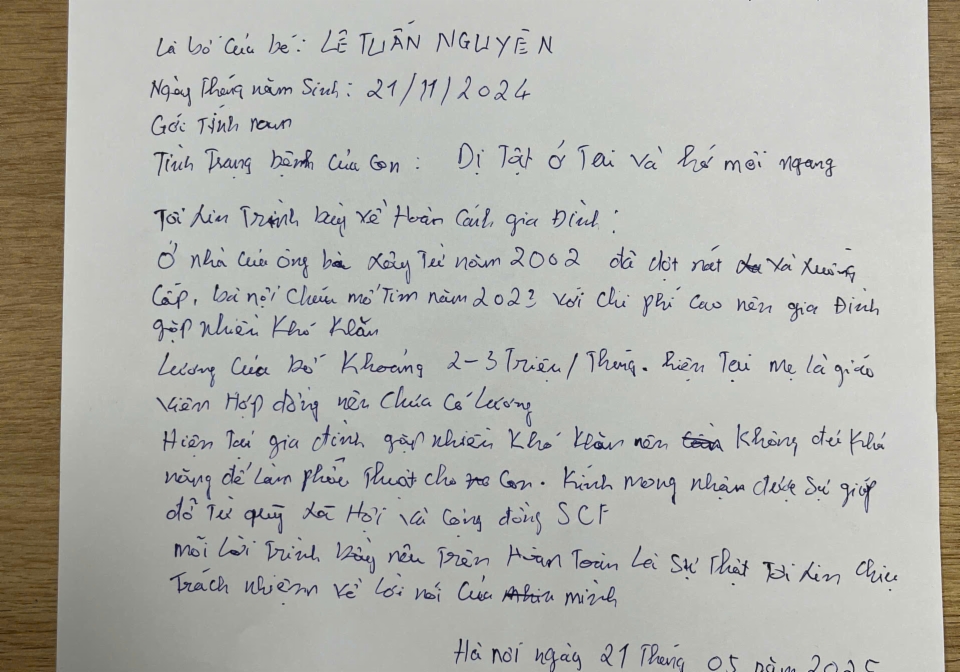 Là bố của bé: LÊ TUẤN NGUYÊN
Ngày tháng năm sinh: 21/11/2024
Giới tính nam
Tình trạng bệnh của con: Dị tật ở tai và hở môi ngang
Tôi xin trình bày về hoàn cảnh gia đình:
Ở nhà của ông bà xây từ năm 2002 đã dột nát và xuống
cấp, bà nội cháu mổ tim năm 2023 với chi phí cao nên gia đình
gặp nhiều khó khăn
Lương của bố khoảng 2-3 triệu/tháng. hiện tại mẹ là giáo
viên hợp đồng nên chưa có lương
Hiện tại gia đình gặp nhiều khó khăn nên không đủ khả
năng để làm phẫu thuật cho con. Kính mong nhận được sự giúp
đỡ từ quỹ xã hội và cộng đồng SCF
mỗi lời trình bày nêu trên hoàn toàn là sự thật tôi xin chịu
trách nhiệm về lời nói của mình
Hà nội ngày 21 tháng 05 năm 2025